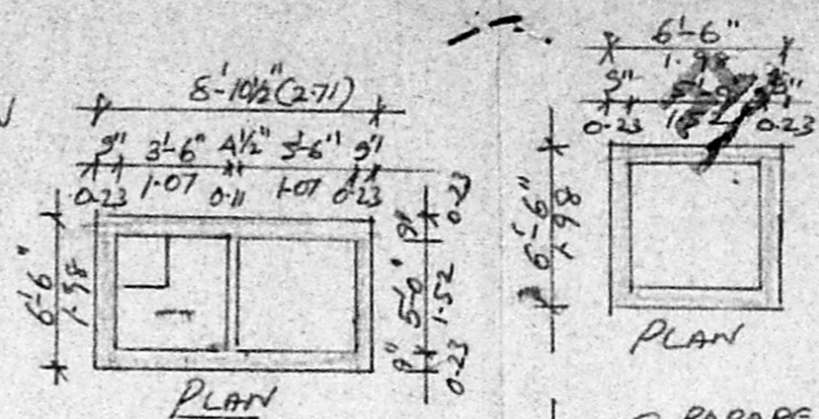 8'-10½" (2.71)
9" 3'-6" 4½" 3'-6" 9"
0.23 1.07 0.11 1.07 0.23
6'-6"
1.98
9" 5'-0" 9"
0.23 1.52 0.23
PLAN
6'-6"
1.98
9" 5'-0" 9"
0.23 1.52 0.23
6'-6"
1.98
PLAN